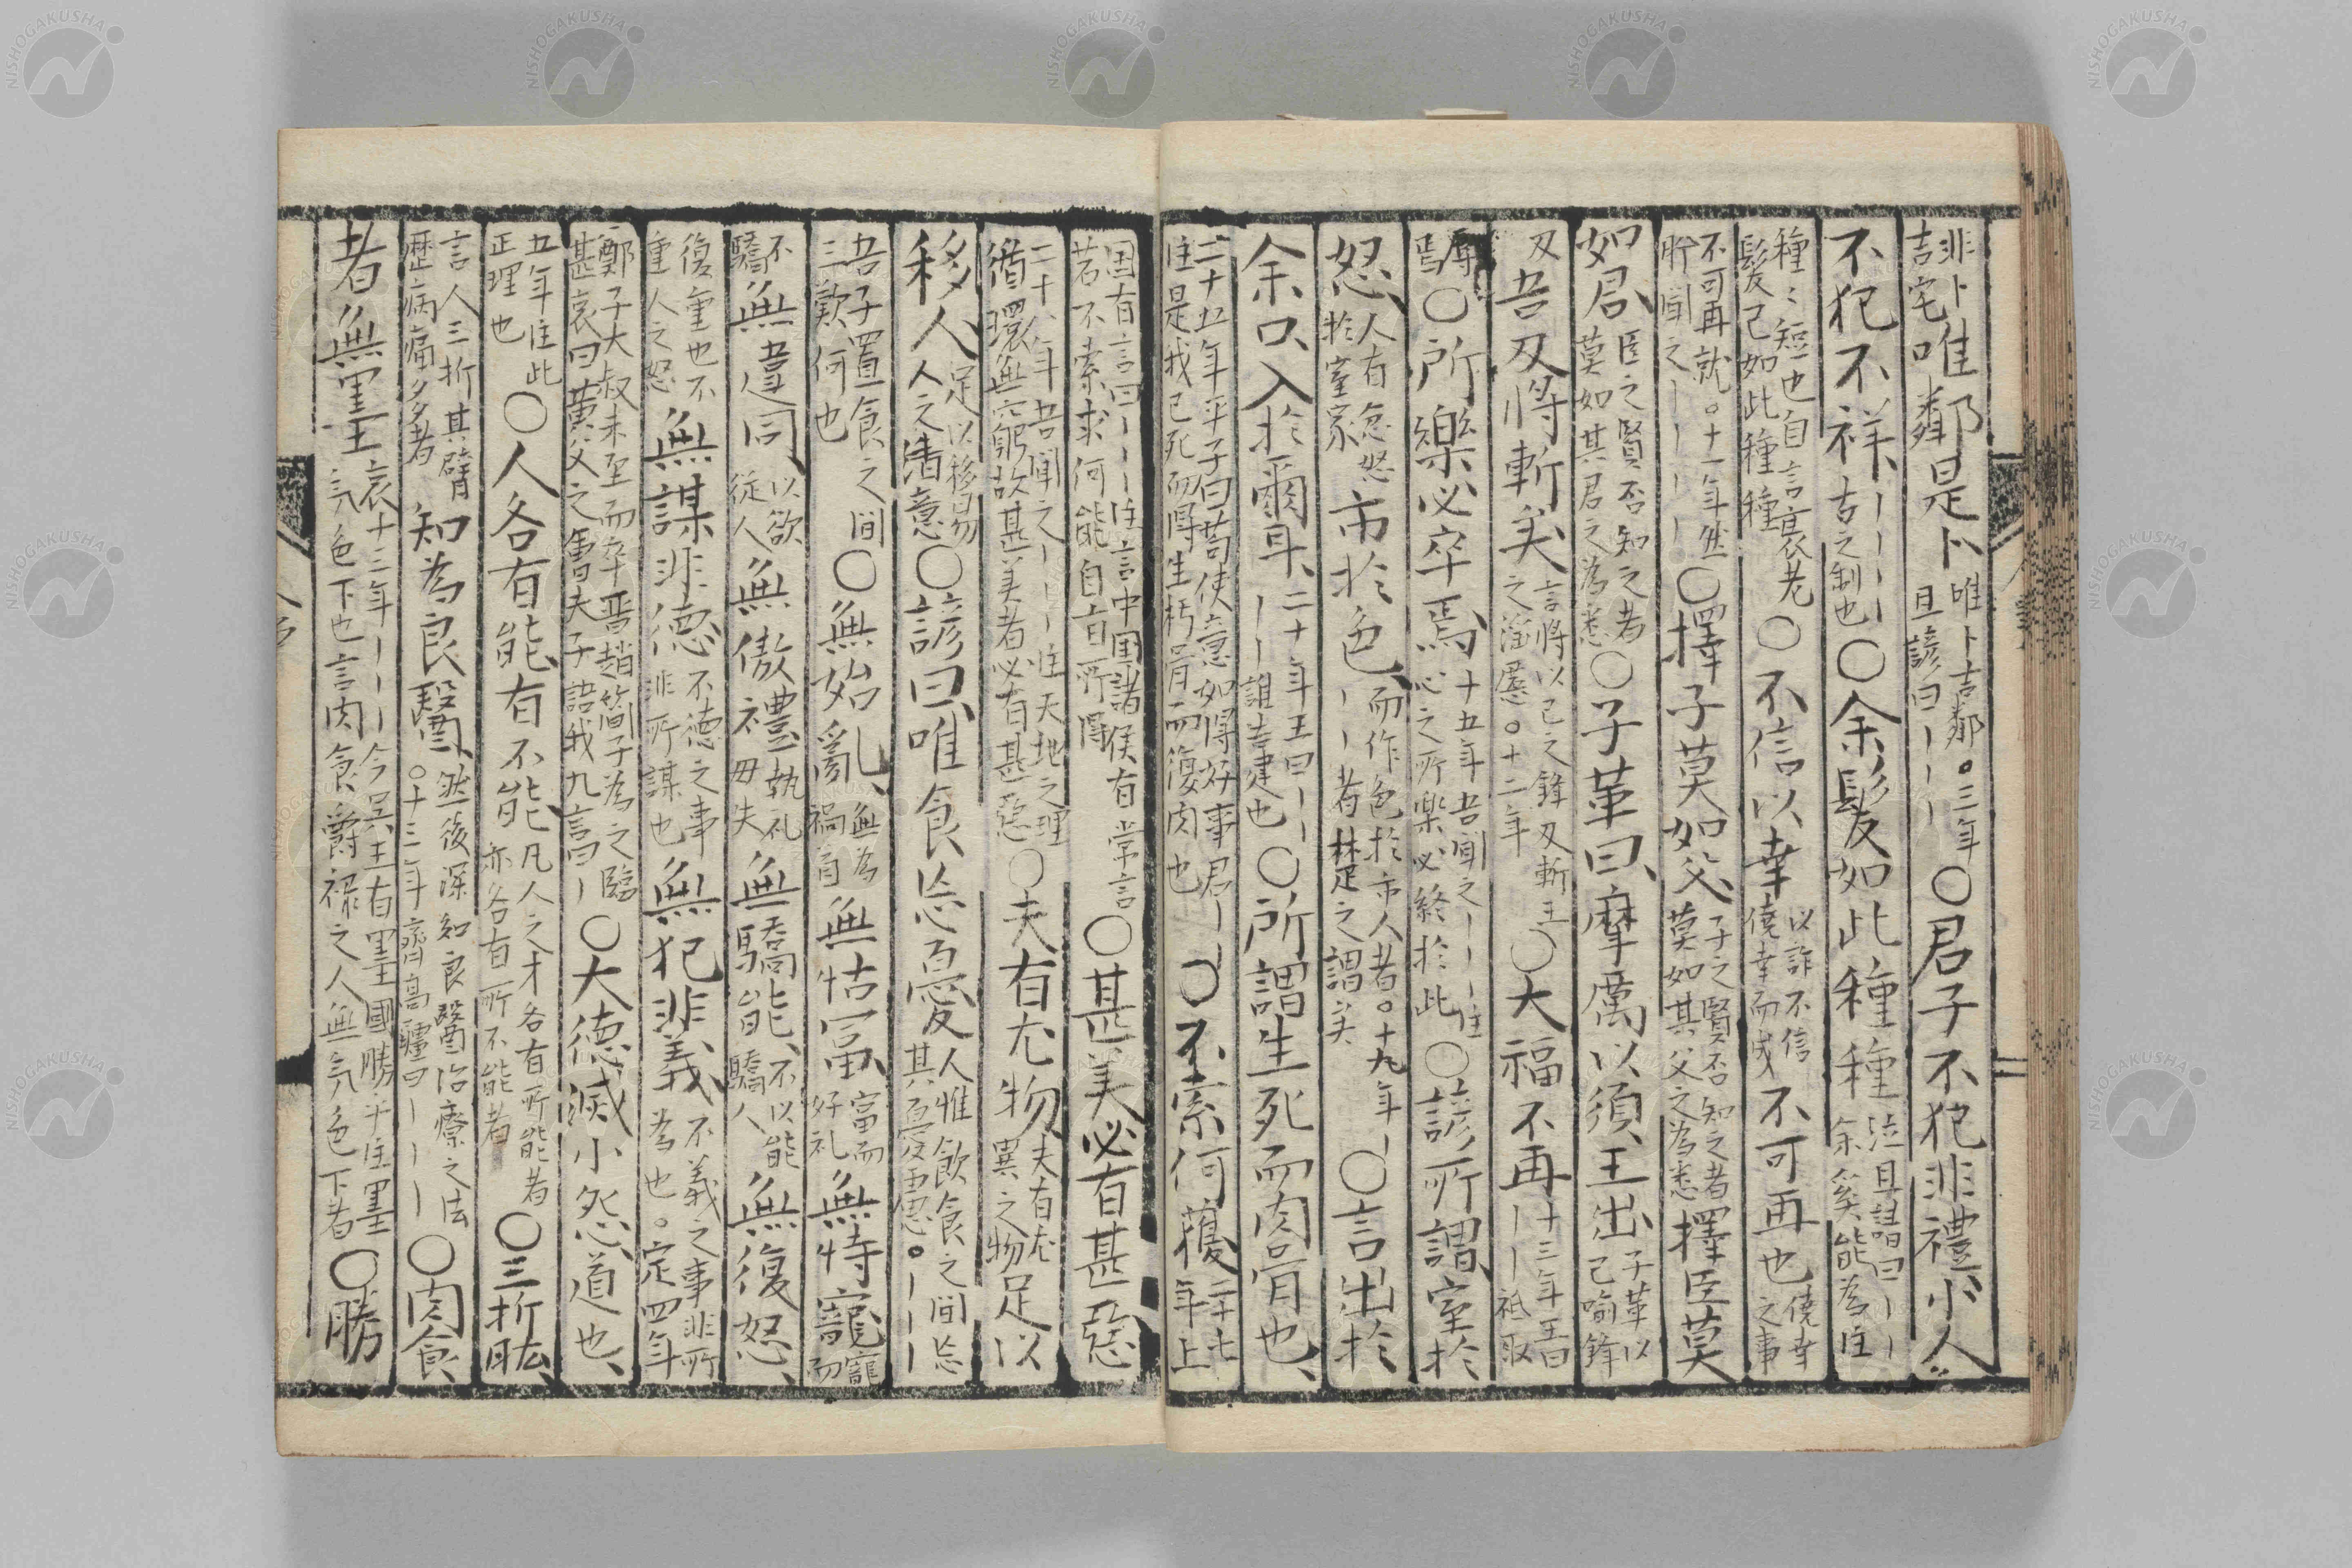 非卜吉宅唯鄰是卜唯卜吉鄰。三年且諺曰〡〡〡〇君子不犯非禮小人
不犯不祥〡〡〡〡古之制也〇余髮如此種種泣且請曰〡〡余奚能為注
種〻短也自言衰老髮已如此種種〇不信以幸以詐不信僥幸而成不可再也僥幸之事
不可再就。十一年然肸聞之〡〡〡〡〇擇子莫如父子之賢否知之者莫如其父之為悉擇臣莫
如君臣之賢否知之者莫如其君之為悉〇子革曰摩厲以須王出子革以己喻鋒
刃吾刃將斬矣言將以己之鋒刃斬王之淫慝。十二年〇大福不再十三年王曰〡〡祗取
辱焉〇所樂必卒焉十五年吾聞之〡〡〡注心之所樂必終於此〇諺所謂室於
怒人有忿怒於室家市於色而作色於市人者。十九年〡〡〡者楚之謂矣〇言出於
余口入於爾耳二十年王曰〡〡〡〡誰告建也〇所謂生死而肉骨也
二十五年平子曰苟使意如得好事君〡〡注是我已死而得生朽骨而復肉也〇不索何獲二十七年上
国有言曰〡〡〡注言中国諸侯有常言若不索求何能自有所得〇甚美必有甚惡
二十八年吾聞之〡〡〡〡注天地之理循環無窮故甚美者必有甚惡〇夫有尤物夫有尤異之物足以
移人足以移易人之情意〇諺曰唯食忘憂人惟飲食之間忘其憂慮。〡〡〡
吾子置食之間三歎何也〇無始亂無為禍首無怙富富而好礼無恃寵寵而
不驕無違同以欲從人無傲禮執礼毋失無驕能不以能驕人無復怒
復重也不重人之怒無謀非德不德之事非所謀也無犯非義不義之事非所為也。定四年
鄭子大叔未至而卒晋趙簡子為之臨甚哀曰黄父之會夫子語我九言曰〡〇大德滅小怨道也
五年注此正理也〇人各有能有不能凡人之才各有所能者亦各有所不能者〇三折肱
言人三折其臂歴病痛多者知為良醫然後深知良醫治療之法。十三年齊高彊曰〡〡〡〇肉食
者無墨哀十三年〡〡〡今呉王有墨國勝乎注墨気色下也言肉食爵禄之人無気色下者〇勝